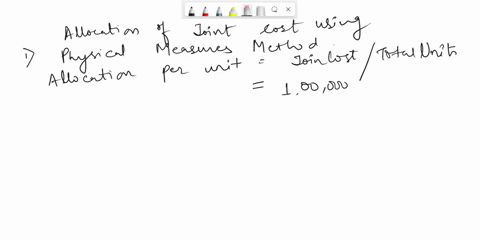 Allocation of Joint cost using
1) Physical Measures Method
Allocation per unit = Join Cost / Total Units
= 1.00,000